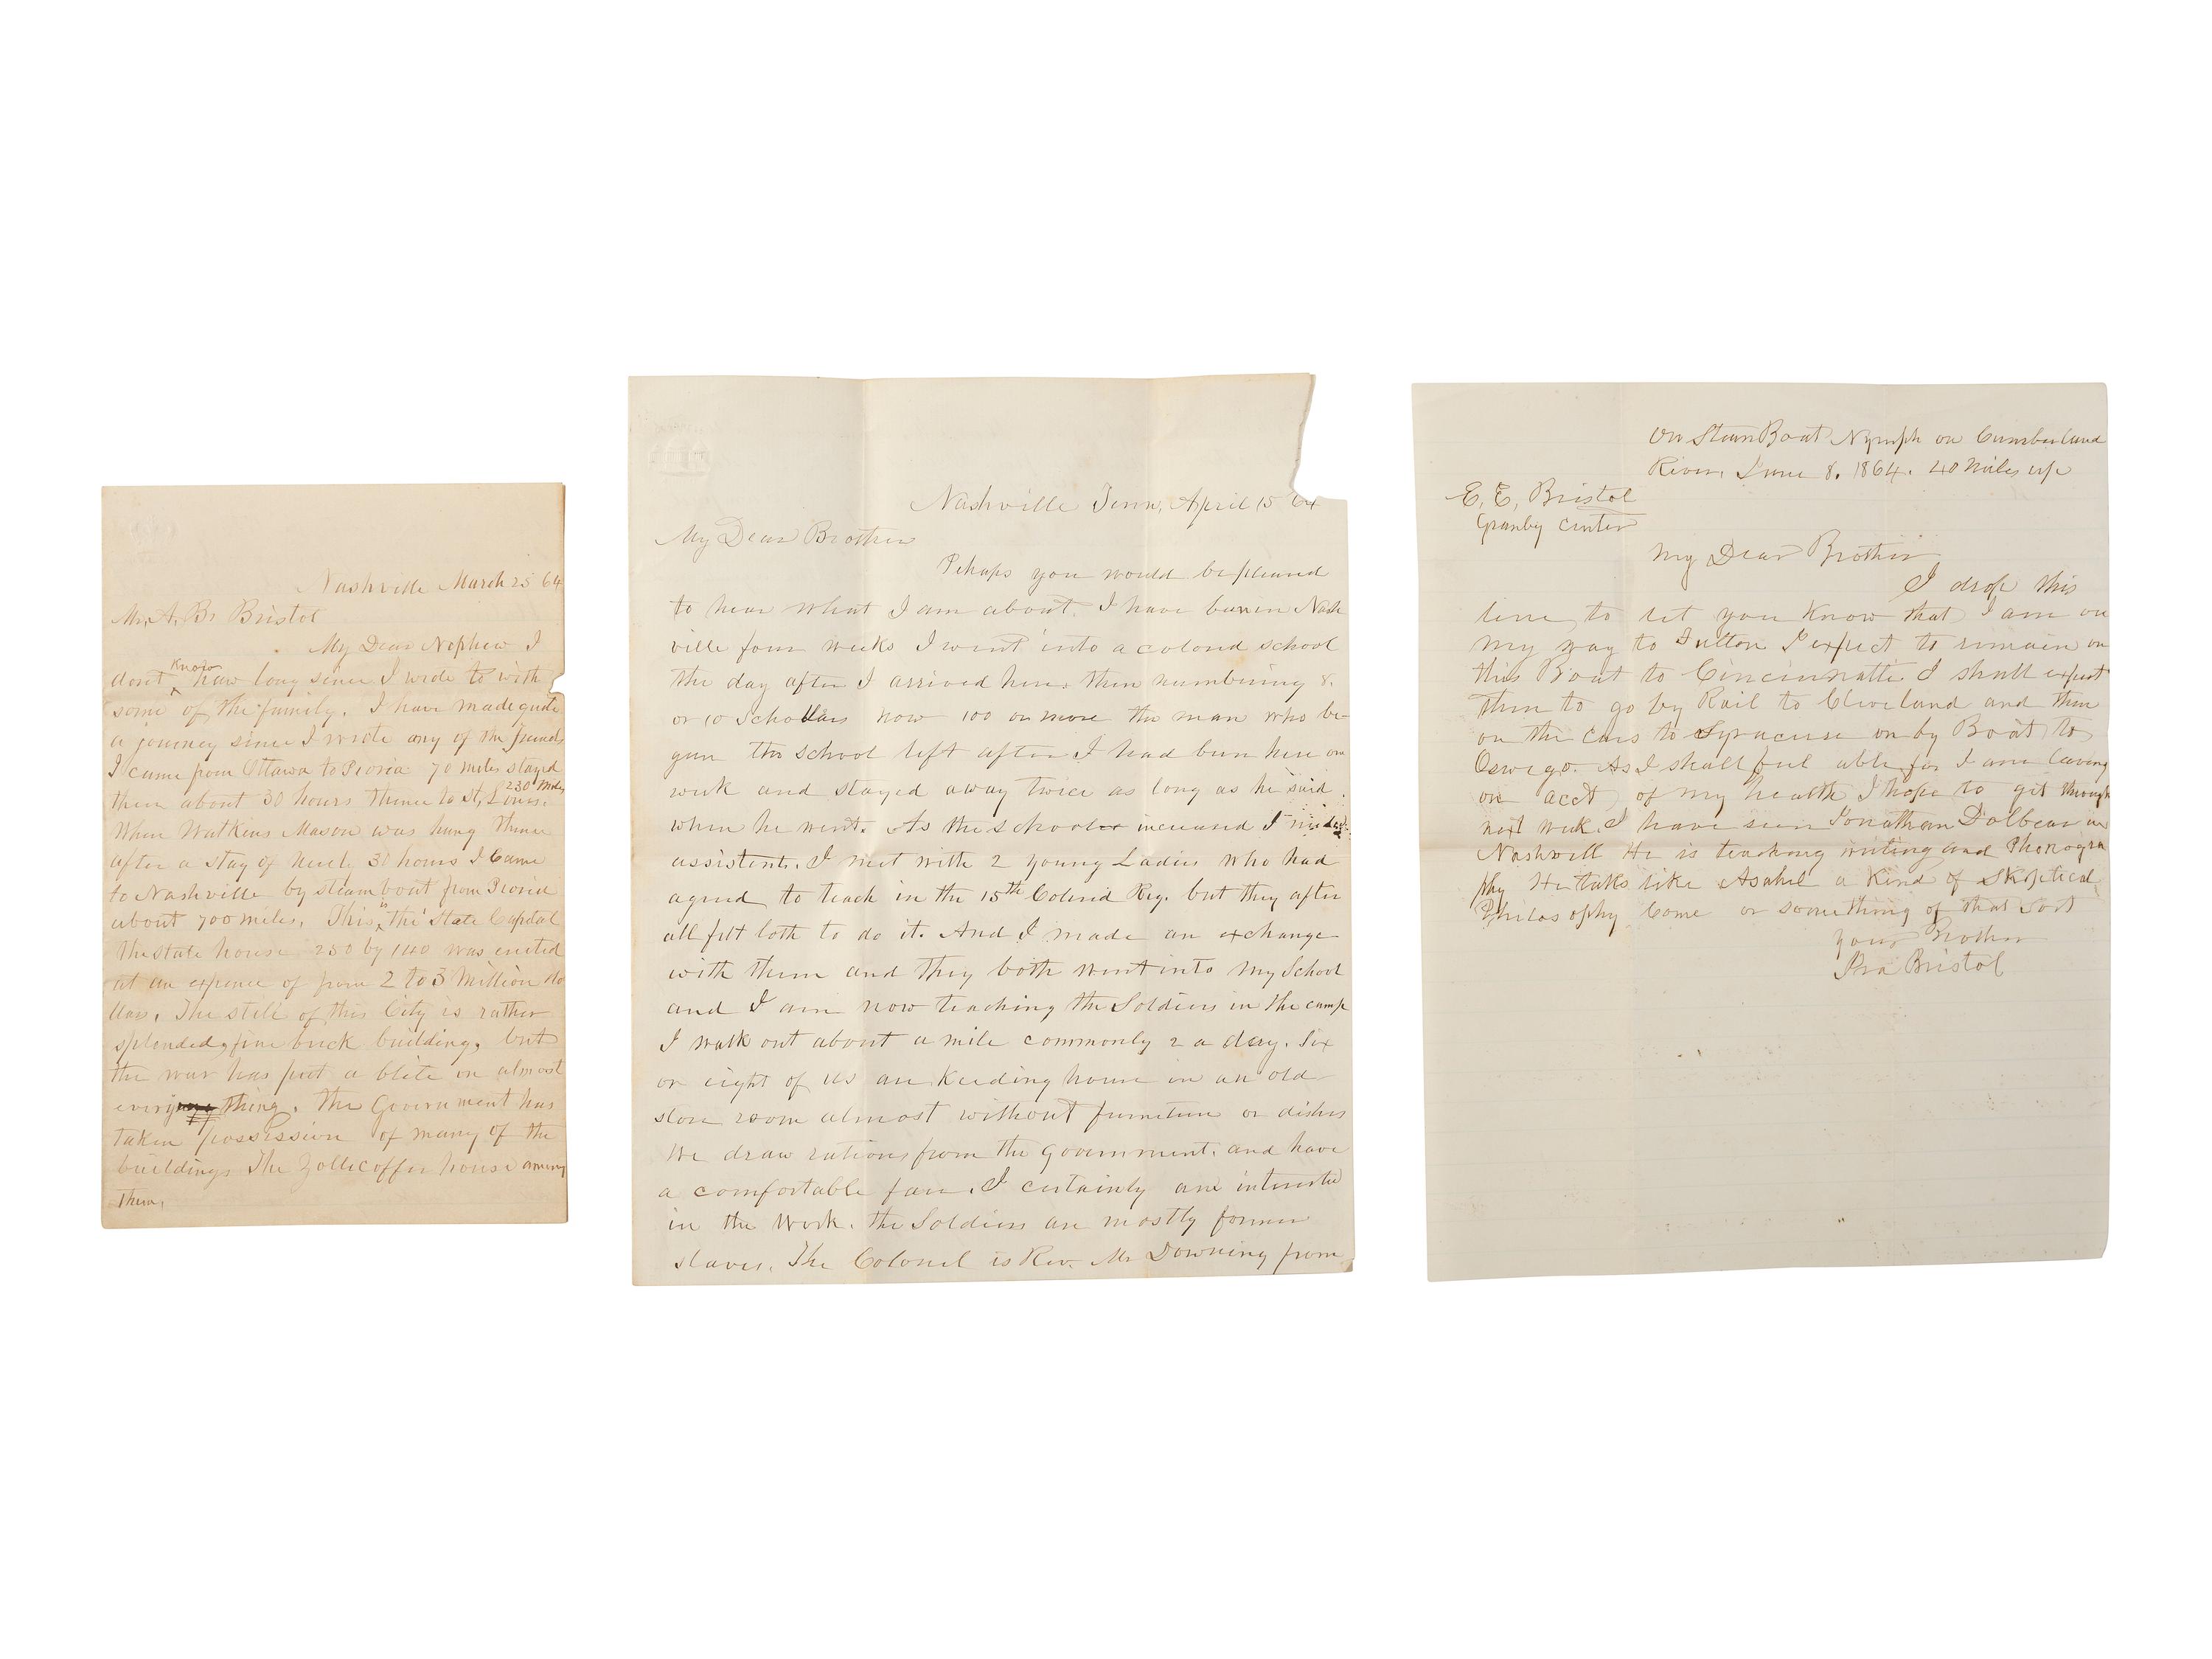 Nashville March 25 64
Mr. A. Br Bristol
My Dear Nephew I
dont know how long since I wrote to with
some of the family. I have made quite
a journey since I wrote any of the friends
I came from Ottawa to Peoria 70 miles stayed
then about 30 hours thence to St, Louis. 230 miles
When Watkins Mason was hung thence
after a stay of nearly 30 hours I came
to Nashville by steam boat from Peoria
about 700 miles. This is the State Capital
the state house 250 by 140 was erected
at an expence of from 2 to 3 Million do
llars. The stile of this City is rather
splended, fine brick building, but
the war has put a blite on almost
every thing. The Government has
taken possession of many of the
buildings The Zollicoffer house among
them.
Nashville Tenn, April 15 64
My Dear Brother
Pehaps you would be pleased
to hear what I am about. I have been in Nash
ville four weeks I went into a colored school
the day after I arrived here then numbering 8.
or 10 Schollars now 100 or more the man who be-
gun the school left after I had been here one
week and stayed away twice as long as he said
when he went. As the School increased I needed
assistents. I met with 2 young Ladies who had
agreed to teach in the 15th Colored Reg. but they after
all felt loth to do it. And I made an exchange
with them and they both went into my School
and I am now teaching the Soldiers in the camp
I walk out about a mile commonly 2 a day. Six
or eight of us are Keeding house in an old
store room almost without furniture or dishes
We draw rations from the government. and have
a comfortable fare. I certainly am interested
in the Work. The Soldiers are mostly former
slaves. The Colonel is Rev. Mr Downing from
On Steam Boat Nymph on Cumberland
River, June 8. 1864. 40 miles up
E, E, Bristol
Granby Center
My Dear Brother
I drop this
line to let you Know that I am on
my way to Fulton I expect to remain on
this Boat to Cincinnatti I shall expect
then to go by Rail to Cleveland and then
on the cars to Syracuse or by Boat to
Oswego. As I shall feel able for I am leaving
on acct of my health I hope to git through
next week. I have seen Jonathan Dolbear in
Nashvill He is teaching writing and Phonogra
phy He talks like Asahel a Kind of Skeptical
Philosophy Come or something of that sort
Your Brother
Ira Bristol